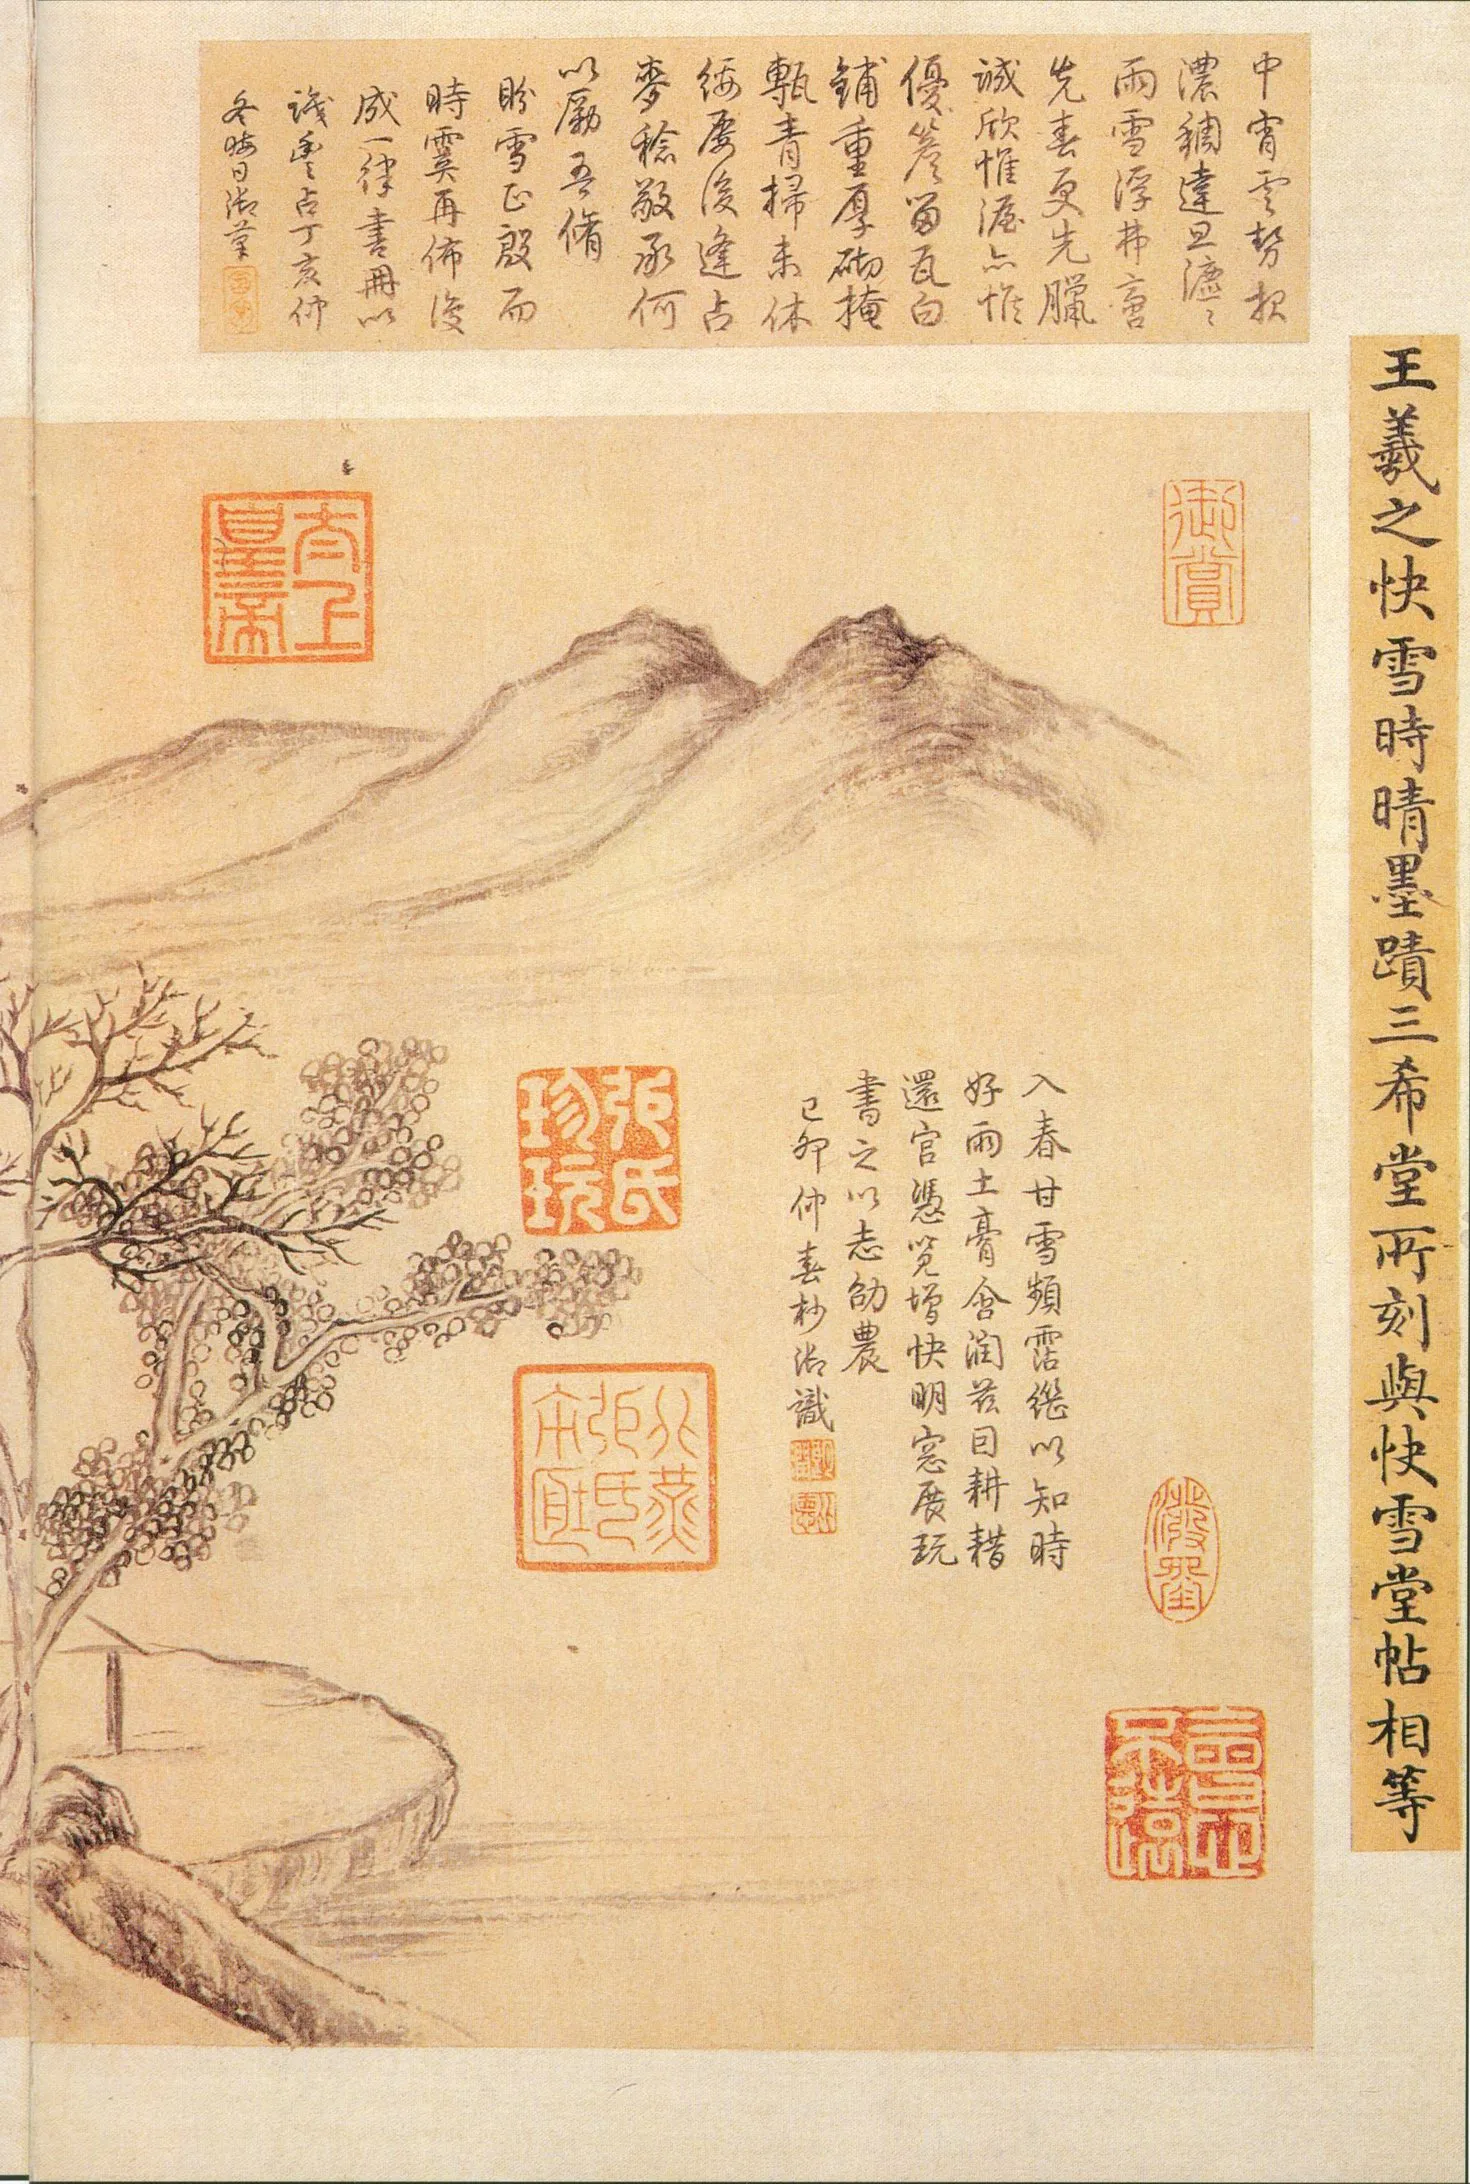 王羲之快雪時晴墨蹟三希堂所刻與快雪堂帖相等
中宵雲勢報
濃稠達旦瀌〻
雨雪浮弗啻
先春更先臘
誠欣惟渥亦惟
優簷留瓦白
鋪重厚砌掩
甎青掃未休
綏屢後逢占
麥稔敬承何
以勵吾脩
盼雪正殷而
時霙再佈復
成一律書冊以
識豐占丁亥仲
冬晦日御筆
御賞
入春甘雪頻霑繼以知時
好雨土膏含潤茲日耕耤
還宮憑覽增快明窓展玩
書之以志劭農
己卯仲春杪御識
太上
皇帝
張氏
珍玩
北燕
張氏